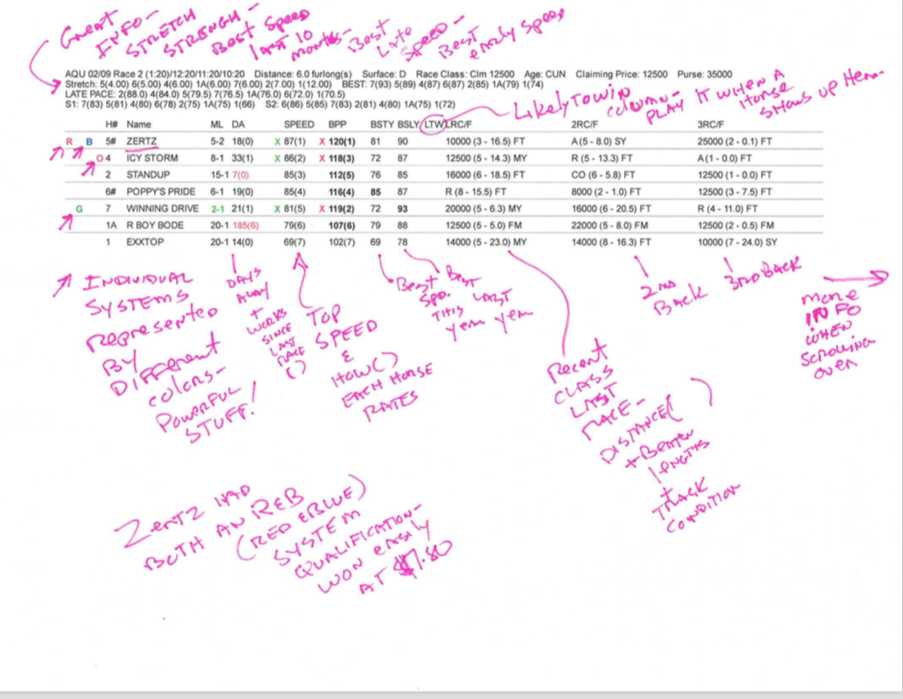 Great
INFO-
STRETCH
STRENGH-
Best Speed
last 10
months-
Best
Late
Speed-
Best
early speed
AQU 02/09 Race 2 (1:20)/12:20/11:20/10:20 Distance: 6.0 furlong(s) Surface: D Race Class: Clm 12500 Age: CUN Claiming Price: 12500 Purse: 35000
Stretch: 5(4.00) 6(5.00) 4(6.00) 1A(6.00) 7(6.00) 2(7.00) 1(12.00) BEST: 7(93) 5(89) 4(87) 6(87) 2(85) 1A(79) 1(74)
LATE PACE: 2(88.0) 4(84.0) 5(79.5) 7(76.5) 1A(76.0) 6(72.0) 1(70.5)
S1: 7(83) 5(81) 4(80) 6(78) 2(75) 1A(75) 1(66) S2: 6(86) 5(85) 7(83) 2(81) 4(80) 1A(75) 1(72)
Likely To win
column-
PLAY IT WHEN A
Horse
SHOWS up Here.
H# Name ML DA SPEED BPP BSTY BSLY LTW LRC/F 2RC/F 3RC/F
R B 5# ZERTZ 5-2 18(0) X 87(1) X 120(1) 81 90 10000 (3 - 16.5) FT A(5 - 8.0) SY 25000 (2 - 0.1) FT
O 4 ICY STORM 8-1 33(1) X 86(2) X 118(3) 72 87 12500 (5 - 14.3) MY R (5 - 13.3) FT A(1 - 0.0) FT
2 STANDUP 15-1 7(0) 85(3) 112(5) 76 85 16000 (6 - 18.5) FT CO (6 - 5.8) FT 12500 (1 - 0.0) FT
6# POPPY'S PRIDE 6-1 19(0) 85(4) 116(4) 85 87 R (8 - 15.5) FT 8000 (2 - 1.0) FT 12500 (3 - 7.5) FT
G 7 WINNING DRIVE 2-1 21(1) X 81(5) X 119(2) 72 93 20000 (5 - 6.3) MY 16000 (6 - 20.5) FT R (4 - 11.0) FT
1A R BOY BODE 20-1 185(6) 79(6) 107(6) 79 88 12500 (5 - 5.0) FM 22000 (5 - 8.0) FM 12500 (2 - 0.5) FM
1 EXXTOP 20-1 14(0) 69(7) 102(7) 69 78 14000 (5 - 23.0) MY 14000 (8 - 16.3) FT 10000 (7 - 24.0) SY
INDIVIDUAL
SYSTEMS
Represented
BY
DIFFerent
colors-
POWERFUL
STUFF!
DAYS
AWAY
+
WORKS
SINCE
LAST
RACE
()
TOP
SPEED
&
HOW()
EACH HORSE
RATES
Best
Spd.
THIS
Year
Best
LAST
Year
Recent
CLASS
LAST
RACE-
DISTANCE(
+ Beaten
lengths
+
TRACK
CONDITION
)
2nd
Back
3rd BACK
more
INFO
WHEN
SCROLLING
over
Zertz HAD
BOTH AN REB
(RED & BLUE)
SYSTEM
QUALIFICATION-
WON easily
AT $7.80